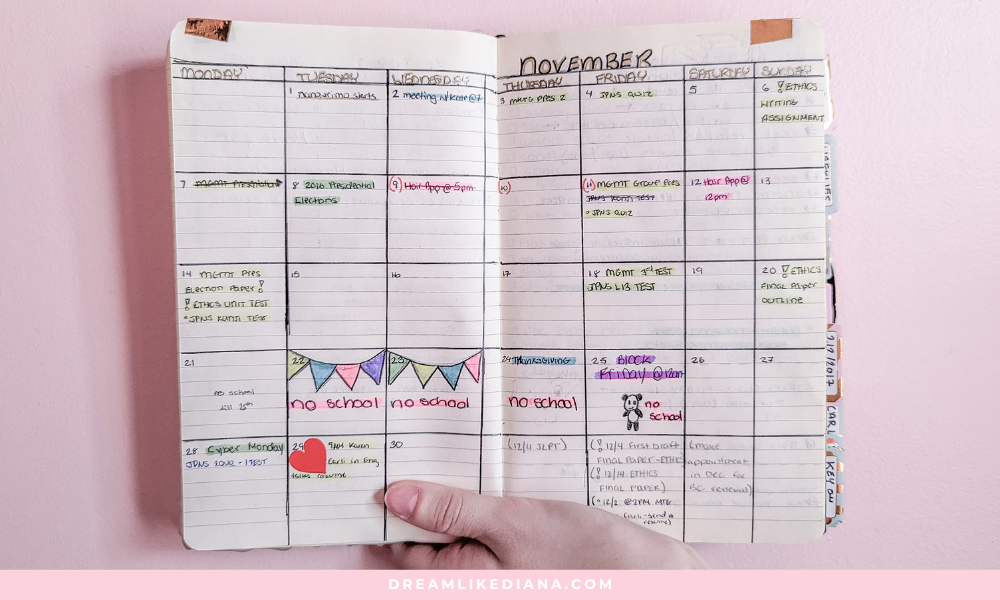 NOVEMBER
MONDAY
TUESDAY
WEDNESDAY
THURSDAY
FRIDAY
SATURDAY
SUNDAY
1 nanowrimo starts
2 meeting w/Kate @7
3 MKTG PRES 2
4 JPNS QUIZ
5
6 ! ETHICS
WRITING
ASSIGNMENT
7 MGMT Presentation
8 2016 Presidential
Elections
9 Hair App @ 5pm
10
11 MGMT Group Pres
JPNS KANJI TEST
• JPNS QUIZ
12 Hair App @
12pm
13
14 MGMT Pres
Election Paper !
! ETHICS UNIT TEST
• JPNS KANJI TEST
15
16
17
18 MGMT 3rd TEST
JPNS L13 TEST
19
20 ! ETHICS
FINAL PAPER
OUTLINE
21
no school
till 25th
22
no school
23
no school
24 THANKSGIVING
no school
25 BLACK
FRIDAY @12am
no
school
26
27
28 Cyber Monday
JPNS - 1 TEST
29
Karen
Carli in Eng
resume
30
(12/4 JLPT)
(! 12/4 First Draft
FINAL PAPER-ETHICS
(! 12/14 ETHICS
FINAL PAPER)
(• 12/2 @2PM MTG
(Carli-send a
resume)
(make
appointment
in DEC for
BC renewal)
2/2/2017
CARL
KEY ON
DREAMLIKEDIANA.COM